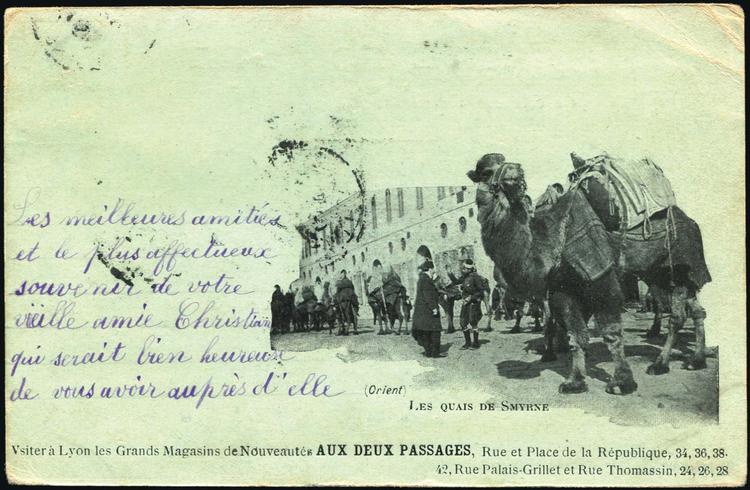 Les meilleures amitiés
et le plus affectueux
souvenir de votre
vieille amie Christiane
qui serait bien heureux
de vous avoir auprès d'elle
(Orient)
LES QUAIS DE SMYRNE
Vsiter à Lyon les Grands Magasins de Nouveautés AUX DEUX PASSAGES, Rue et Place de la République, 34, 36, 38.
42, Rue Palais-Grillet et Rue Thomassin, 24, 26, 28